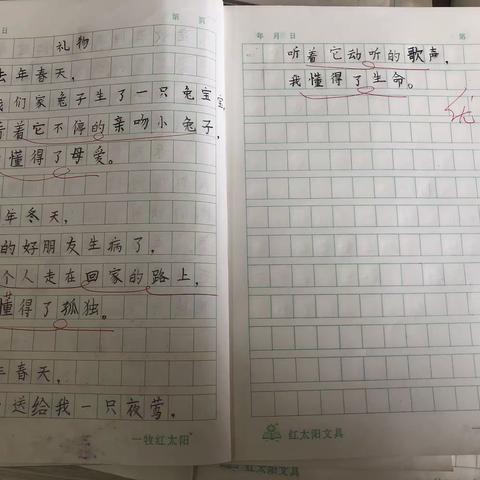 日
第
页
礼物
去年春天，
我们家兔子生了一只兔宝宝，
看着它不停的亲吻小兔子，
懂得了母爱。
年冬天，
的好朋友生病了，
个人走在回家的路上，
懂得了孤独。
年春天，
送给我一只夜莺，
一牧红太阳
年 月 日
第
听着它动听的歌声，
我懂得了生命。
优
红太阳文具